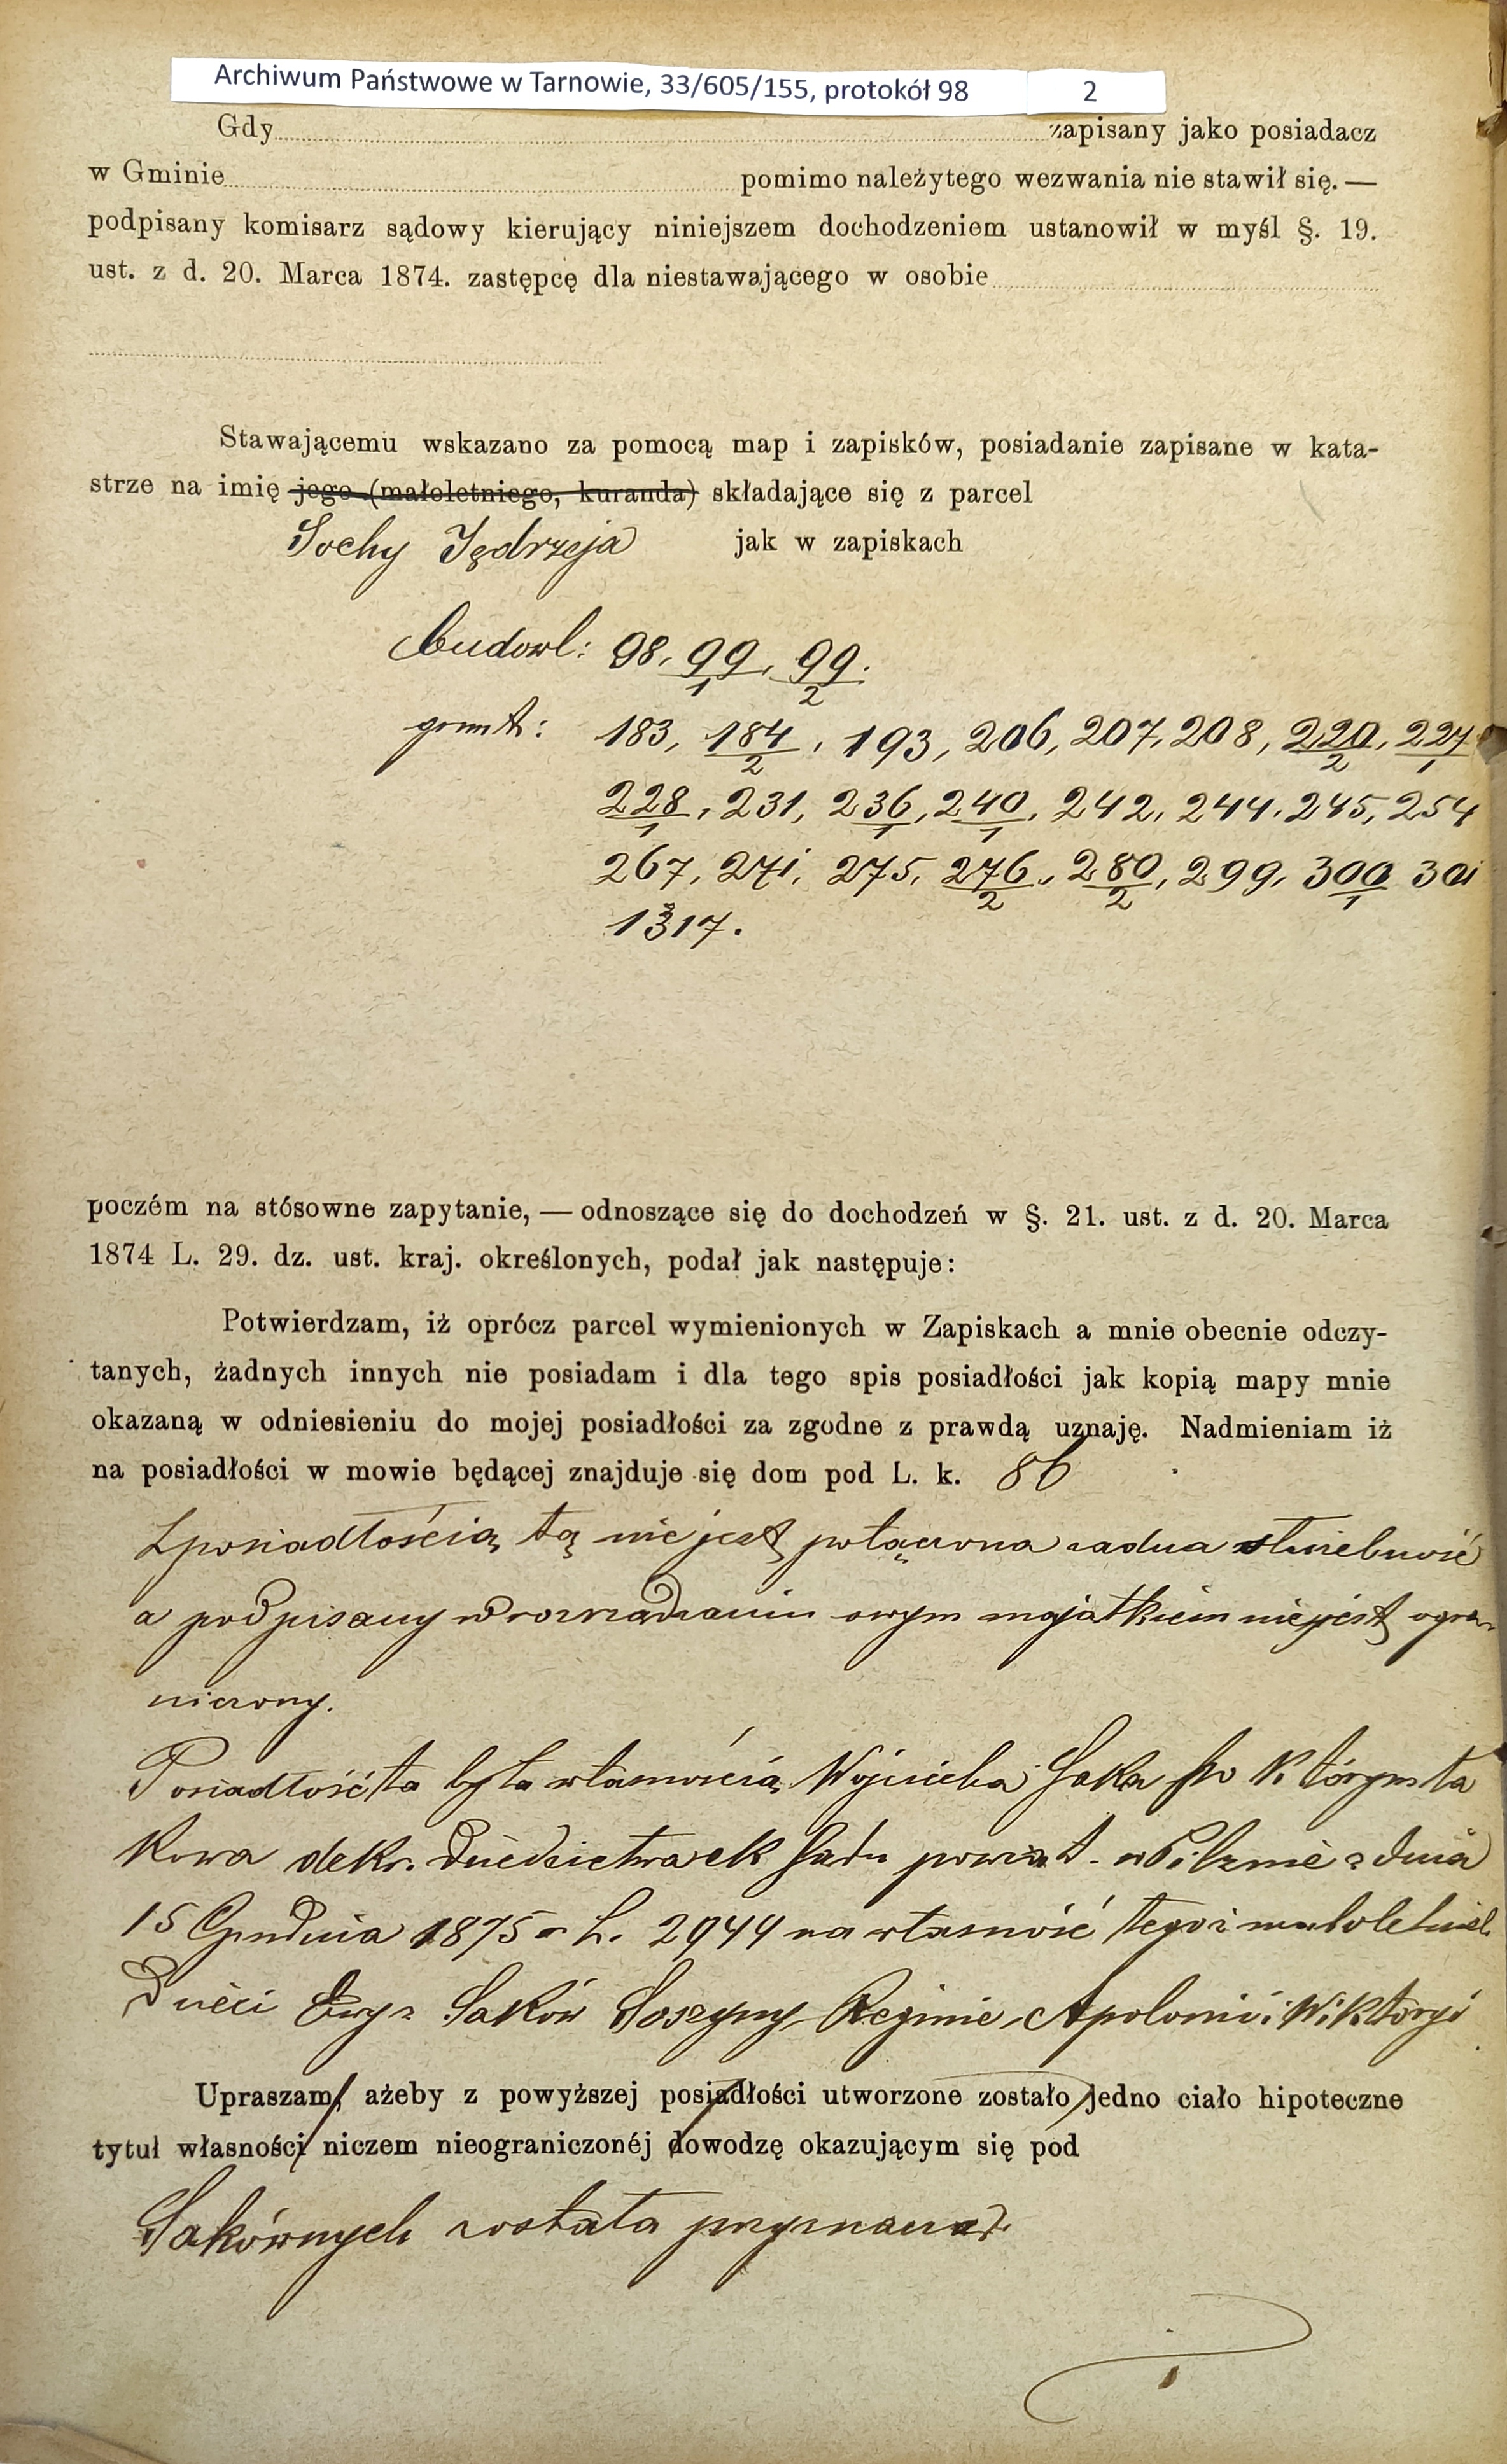 Archiwum Państwowe w Tarnowie, 33/605/155, protokół 98 2
Gdy zapisany jako posiadacz
w Gminie pomimo należytego wezwania nie stawił się. —
podpisany komisarz sądowy kierujący niniejszem dochodzeniem ustanowił w myśl §. 19.
ust. z d. 20. Marca 1874. zastępcę dla niestawającego w osobie
Stawającemu wskazano za pomocą map i zapisków, posiadanie zapisane w kata-
strze na imię jego (małoletniego, kuranda) składające się z parcel
Sochy Jędrzeja jak w zapiskach
budowl: 98, 99/1, 99/2.
grunt: 183, 184/2, 193, 206, 207, 208, 220/2, 227/1
228/1, 231, 236/1, 240/1, 242, 244, 245, 254
267, 271, 275, 276/2, 280/2, 299, 300/1 301
1317.
poczém na stósowne zapytanie, — odnoszące się do dochodzeń w §. 21. ust. z d. 20. Marca
1874 L. 29. dz. ust. kraj. określonych, podał jak następuje:
Potwierdzam, iż oprócz parcel wymienionych w Zapiskach a mnie obecnie odczy-
tanych, żadnych innych nie posiadam i dla tego spis posiadłości jak kopią mapy mnie
okazaną w odniesieniu do mojej posiadłości za zgodne z prawdą uznaję. Nadmieniam iż
na posiadłości w mowie będącej znajduje się dom pod L. k. 86
Z posiadłością tą nie jest połączona żadna służebność
a podpisany w rozrządzaniu owym majątkiem nie jest ogra-
niczony.
Posiadłość ta była własnością Wojciecha Saka po którym ta
kowa dekr. dziedzictwa ck Sądu powiat. w Pilznie z dnia
15 Grudnia 1875 L. 2944 na własność tegoż małoletnich
Dzieci Saków Reginie, Apolonii i Wiktoryi
Upraszam, ażeby z powyższej posiadłości utworzone zostało jedno ciało hipoteczne
tytuł własności niczem nieograniczonéj dowodzę okazującym się pod
Sakównych została przyznaną.